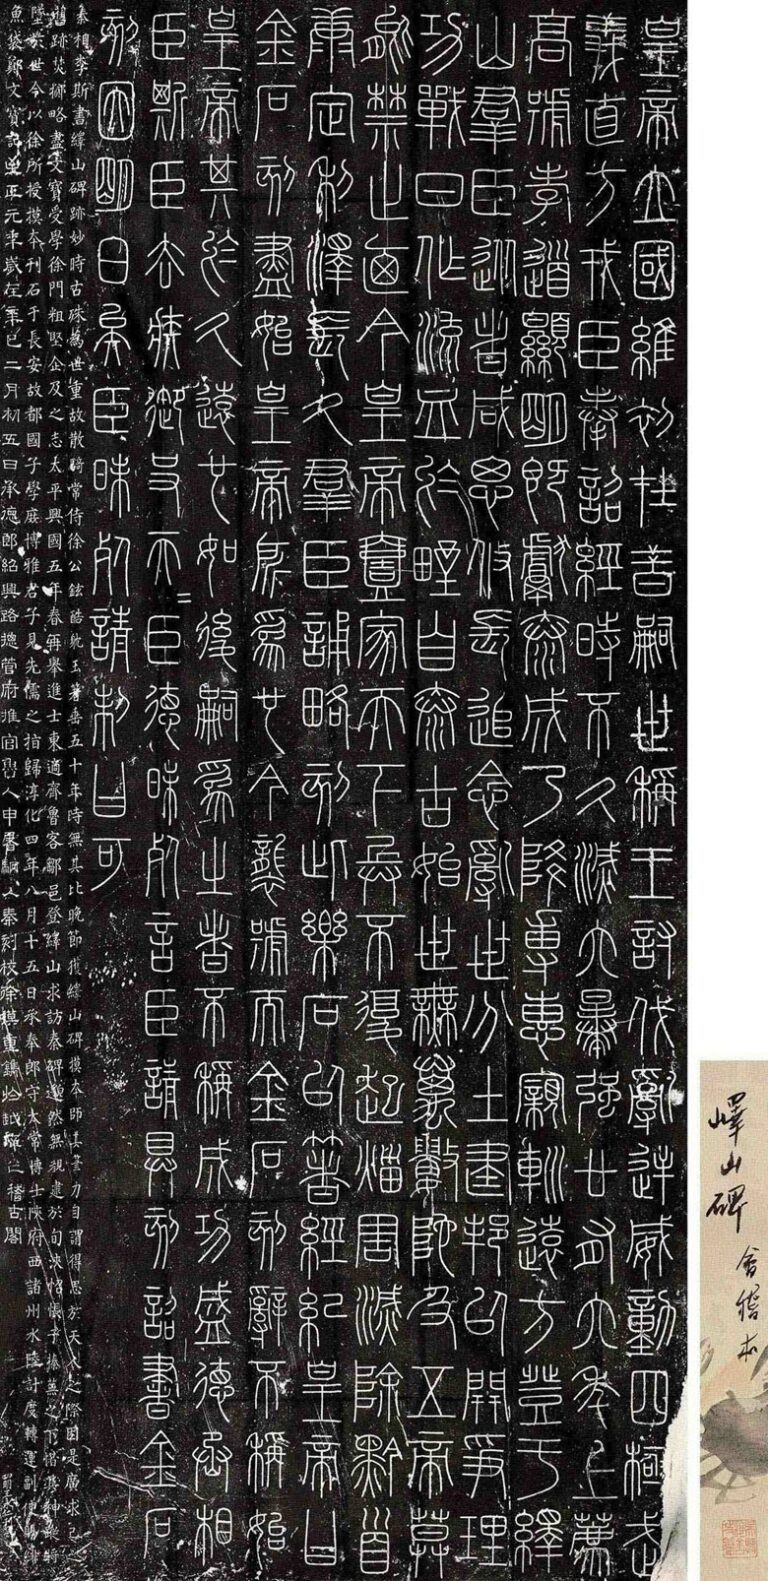 皇帝立國維初在昔嗣世稱王討伐亂逆威動四極武
義直方戎臣奉詔經時不久滅六暴強廿有六年上薦
高號孝道顯明既獻泰成乃降專惠親巡遠方登于繹
山群臣從者咸思攸長追念亂世分土建邦以開爭理
功戰日作流血於野自泰古始世無萬數陀及五帝莫
能禁止廼今皇帝壹家天下兵不復起災害滅除黔首
康定利澤長久群臣誦略刻此樂石以著經紀皇帝曰
金石刻盡始皇帝所為也今襲號而金石刻辭不稱始
皇帝其於久遠也如後嗣為之者不稱成功盛德丞相
臣斯臣去疾御史夫=臣德昧死言臣請具刻詔書金石
刻因明白矣臣昧死請制曰可
秦相李斯書繹山碑跡妙時古殊為世重故散騎常侍徐公鉉酷躭玉箸垂五十年時無其比晚節獲繹山碑摸本師其筆力自謂得思於天人之際因是廣求己之
舊跡焚擲略盡文寶受學徐門粗堅企及之志太平興國五年春再舉進士東適齊魯客鄒邑登繹山求訪秦碑邈然無覩逮於旬浹怊悵于榛蕪之下惜其神蹤將
墜於世今以徐所授摸本刊石于長安故都國子學庶博雅君子見先儒之指歸淳化四年八月十五日承奉郎守太常博士陝府西諸州水陸計度轉運副使賜緋
魚袋鄭文寶記至正元年歲在辛巳二月初五日承德郎紹興路總管府推官嶧人申屠駉以秦刻校徐摸重鐫於越庠之稽古閣
嶧山碑
會稽本